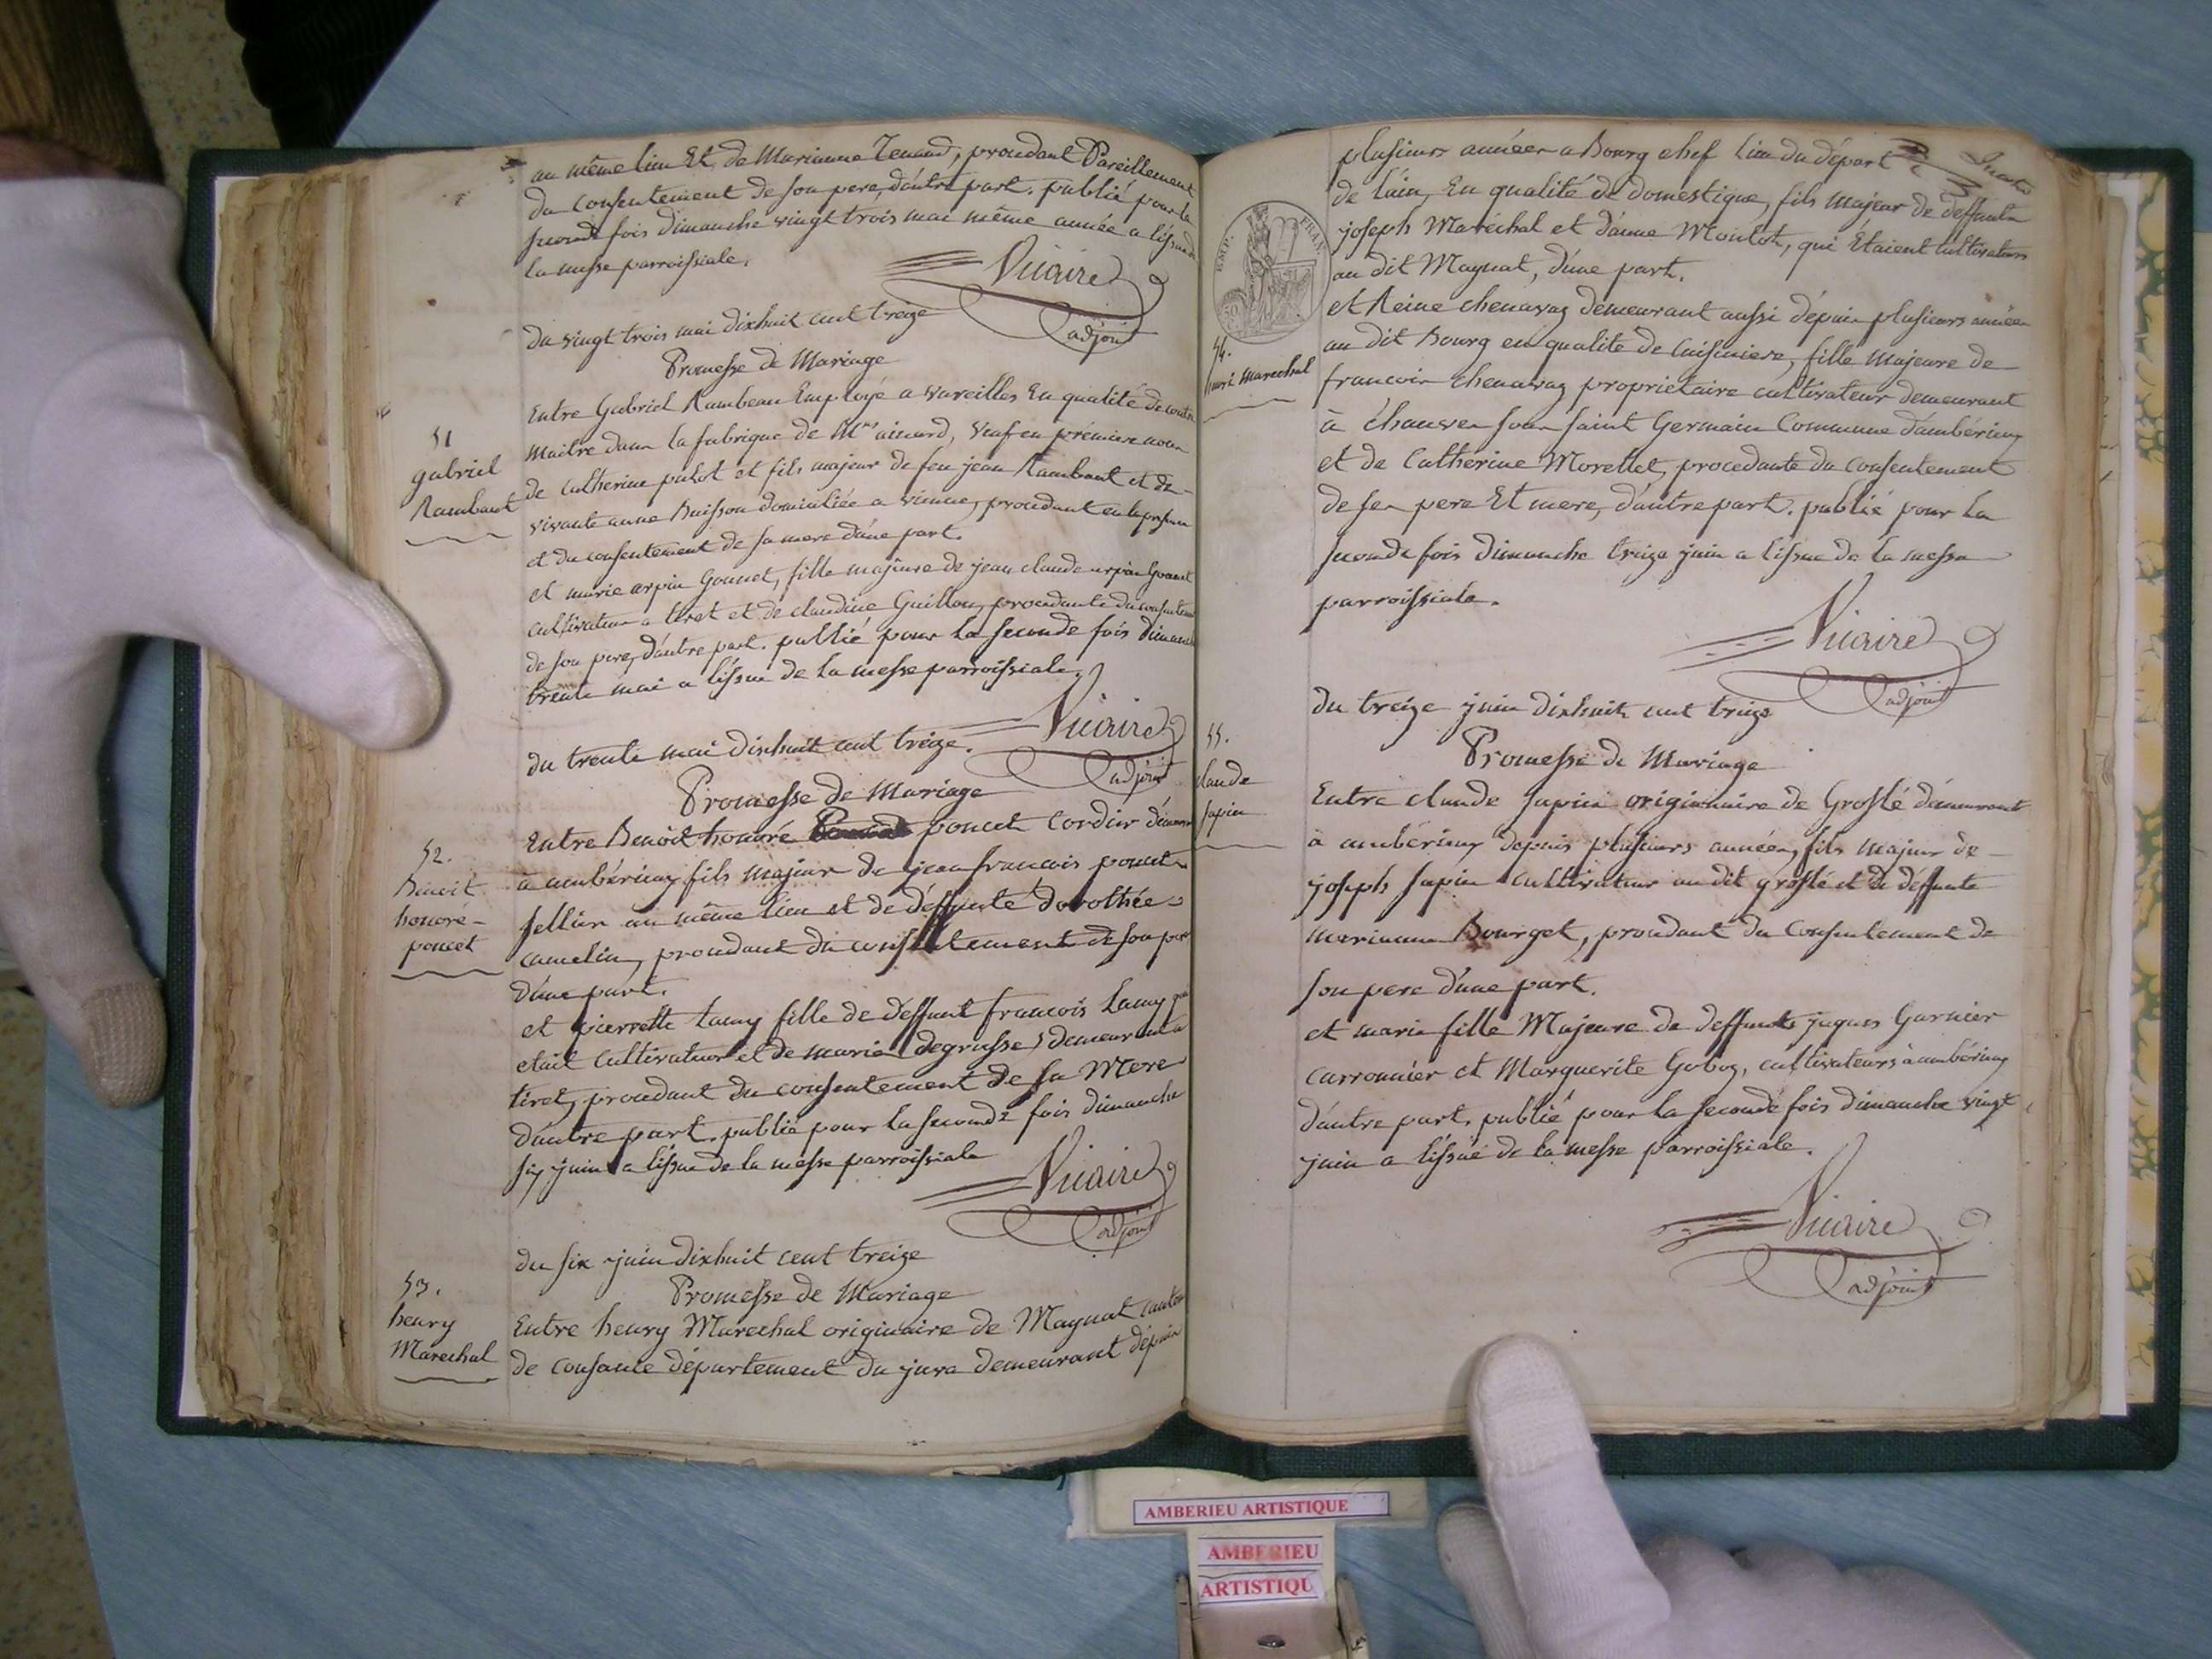 au même lieu Et de Marianne Tenand, procedant Pareillement
du consentement de son pere, d'autre part. publié pour la
seconde fois dimanche vingt trois mai même année a l'issue de
la messe parroissiale.
Vicaire
adjoint
du vingt trois mai dixhuit cent treize
Promesse de Mariage
51
gabriel
Rambaut
Entre Gabriel Rambeau Employé a vareilles En qualité de contre
maitre dans la fabrique de Mrs aimard, veuf en prémiere noces
de catherine pulot et fils majeur de feu jean Rambaut et de
vivante anne Buisson domiciliée a vienne, procedant en la presence
et du consentement de sa mere d'une part.
et marie arpin Gonnet, fille majeure de jean claude arpin Gonnet
cultivateur a tiret et de claudine Guillon, procedante du consentement
de son pere, d'autre part. publié pour la seconde fois dimanche
trente mai a l'issue de la messe parroissiale.
Vicaire
adjoint
du trente mai dixhuit cent treize.
Promesse de Mariage
52.
Benoit
honoré
poncet
Entre Benoit honoré poncet cordier démeurant
à ambérieux fils majeur de jean francois poncet
sellier au même lieu et de déffunte dorothée
camelin, procedant du consentement de son pere
d'une part.
et pierrette Lamy fille de deffunt francois Lamy qui
etait cultivateur et de marie degrusse, demeurant a
tiret, procedant du consentement de sa Mere
d'autre part. publié pour la seconde fois dimanche
six juin a l'issue de la messe parroissiale
Vicaire
adjoint
du six juin dixhuit cent treize
Promesse de Mariage
53.
henry
Marechal
Entre henry Marechal originaire de Maynat canton
de consance département du jura demeurant dépuis
plusieurs années a Bourg chef lieu du départ
de l'ain, En qualité de domestique, fils majeur de deffunts
joseph Maréchal et d'anne Moulot, qui étaient cultivateurs
au dit Maynat, d'une part.
EMP. FRAN.
54.
henri marechal
et Reine chenavaz demeurant aussi dépuis plusieurs années
au dit Bourg en qualité de cuisiniere, fille majeure de
francois chenavaz propriétaire cultivateur demeurant
à Chauses sous saint Germain Commune d'ambérieux
et de Catherine Morellet, procedante du consentement
de ses pere Et mere, d'autre part. publié pour la
seconde fois dimanche treize juin a l'issue de la messe
parroissiale.
Vicaire
adjoint
du treize juin dixhuit cent treize
Promesse de Mariage
55.
claude
sapin
Entre claude sapin originaire de Groslé démeurant
à ambérieux depuis plusieurs années, fils majeur de
joseph sapin cultivateur au dit groslé et de déffunte
marianne Bourget, procedant du consentement de
son pere d'une part.
et marie fille Majeure de deffunts jaques Garnier
carronnier et Marguerite Goboz, cultivateurs à ambérieux
d'autre part, publié pour la seconde fois dimanche vingt
juin a l'issue de la messe parroissiale.
Vicaire
adjoint
AMBERIEU ARTISTIQUE
AMBERIEU
ARTISTIQU